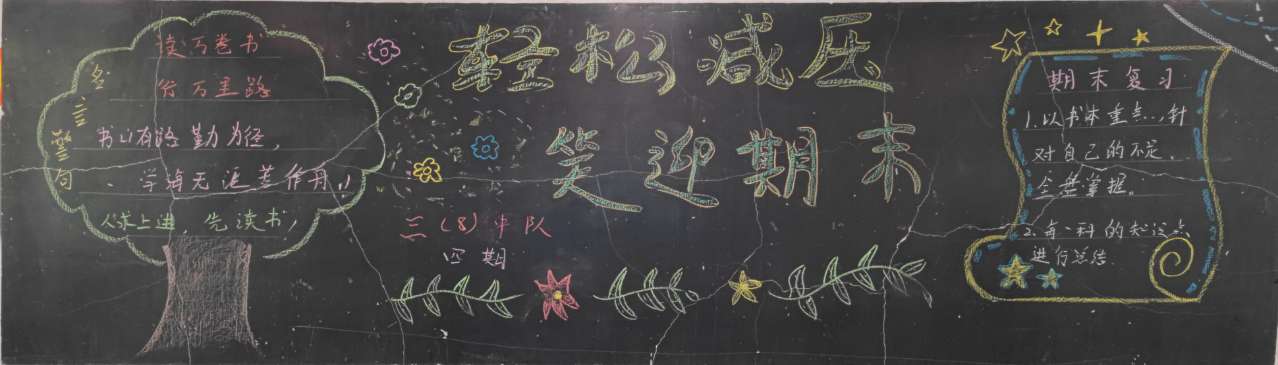 名言警句
读万卷书
行万里路
书山有路勤为径,
学海无涯苦作舟,
人求上进,先读书,
轻松减压
笑迎期末
三(8)中队
四期
期末复习
1.以书本重点...,针
对自己的不足、
全盘掌握。
2.每一科的知识点
进行总结.